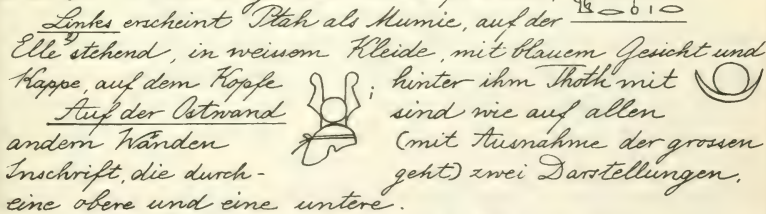 Links erscheint Ptah als Mumie, auf der
Elle²⁾ stehend, in weissem Kleide, mit blauem Gesicht und
Kappe, auf dem Kopfe ; hinter ihm Thoth mit
Auf der Ostwand sind wie auf allen
andern Wänden (mit Ausnahme der grossen
Inschrift, die durch- geht) zwei Darstellungen,
eine obere und eine untere.